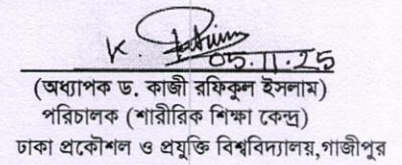 05.11.25
(অধ্যাপক ড. কাজী রফিকুল ইসলাম)
পরিচালক (শারীরিক শিক্ষা কেন্দ্র)
ঢাকা প্রকৌশল ও প্রযুক্তি বিশ্ববিদ্যালয়,গাজীপুর